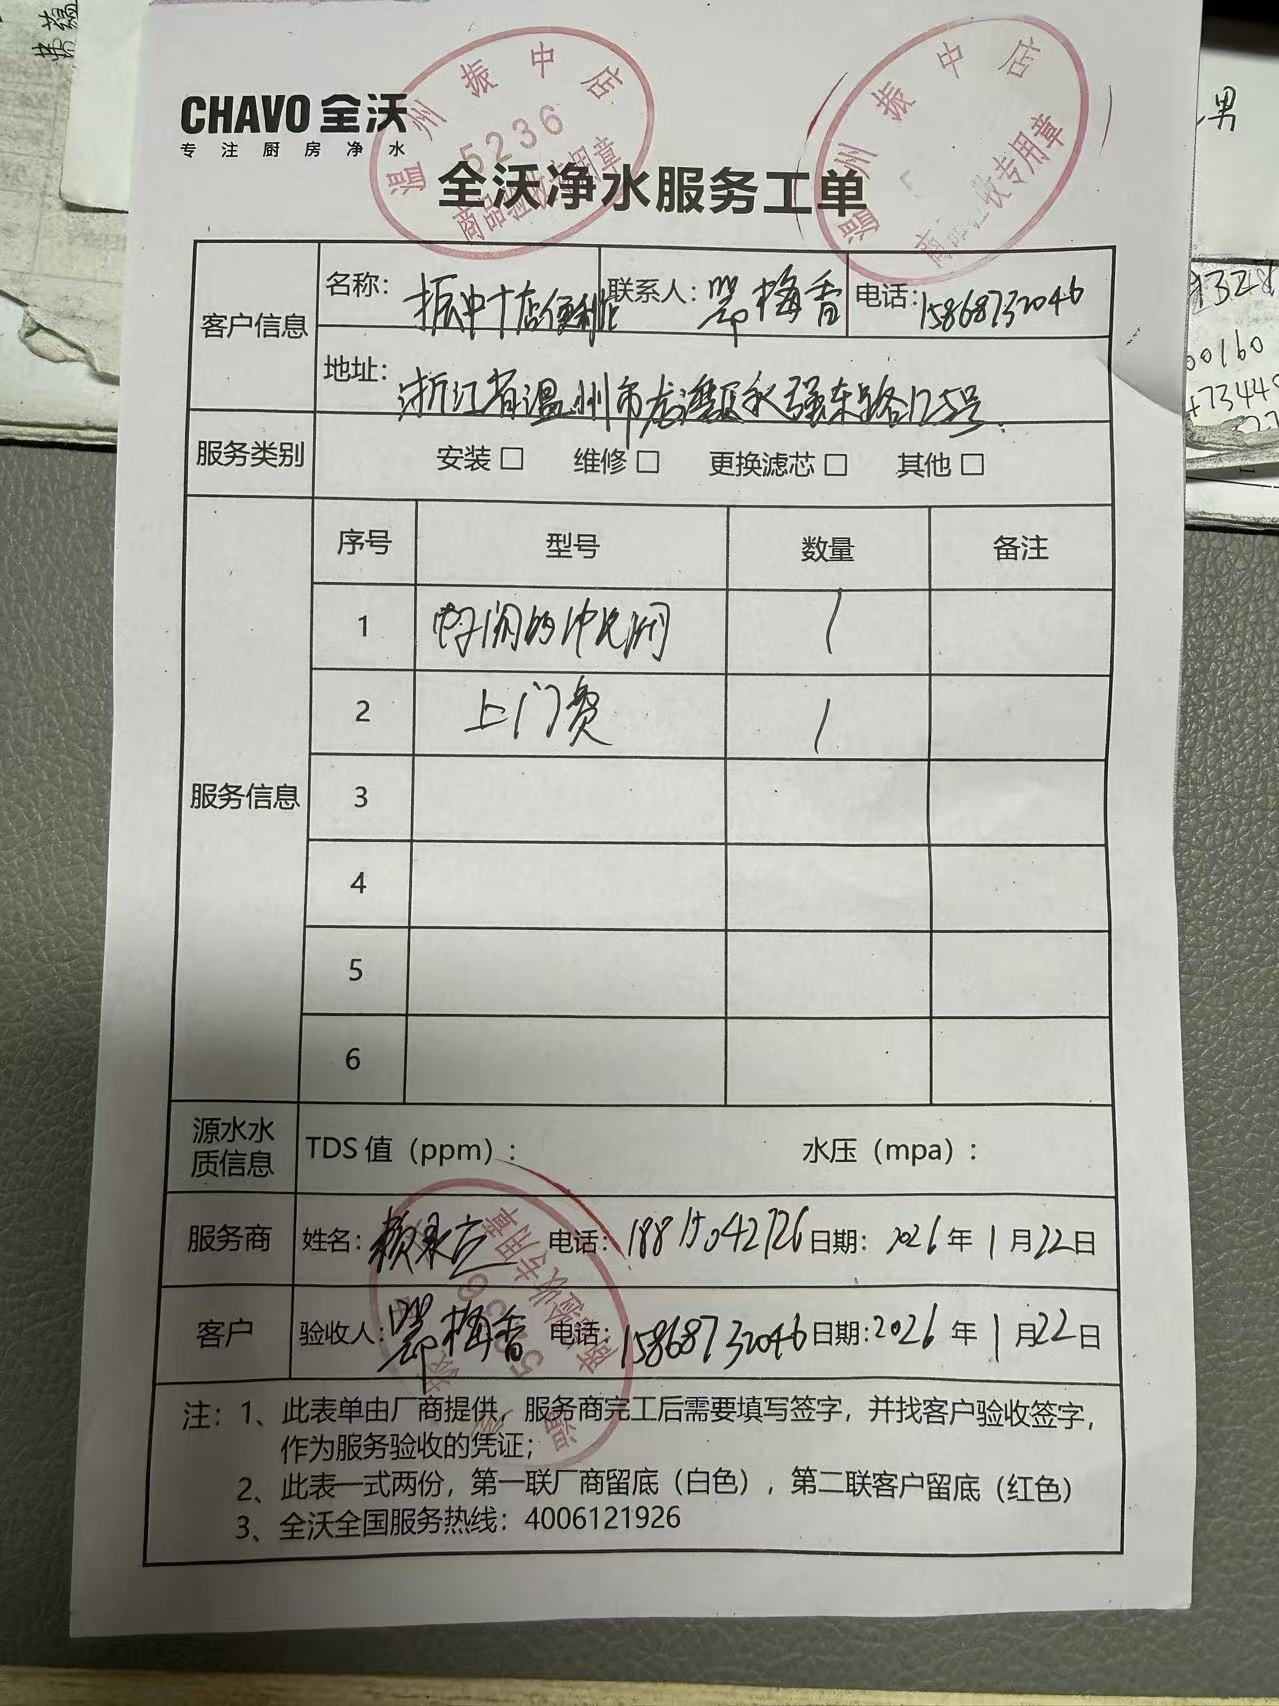 CHAVO 全沃
专注厨房净水
温州振中店
5236
商品验收专用章
温州振中店
收专用章
全沃净水服务工单
客户信息
名称：振中店便利店
联系人：梅香
电话：15868732046
地址：浙江省温州市龙湾区永强东路125号
服务类别
安装 □ 维修 □ 更换滤芯 □ 其他 □
服务信息
序号 型号 数量 备注
1 的冲洗阀 1
2 上门费 1
3
4
5
6
源水水质信息
TDS 值（ppm）： 水压（mpa）：
服务商 姓名：赖永 电话：18815042726 日期：2026年1月22日
客户 验收人：梅香 电话：15868732046 日期：2026年1月22日
注：1、此表单由厂商提供，服务商完工后需要填写签字，并找客户验收签字，
作为服务验收的凭证；
2、此表一式两份，第一联厂商留底（白色），第二联客户留底（红色）
3、全沃全国服务热线：4006121926
男